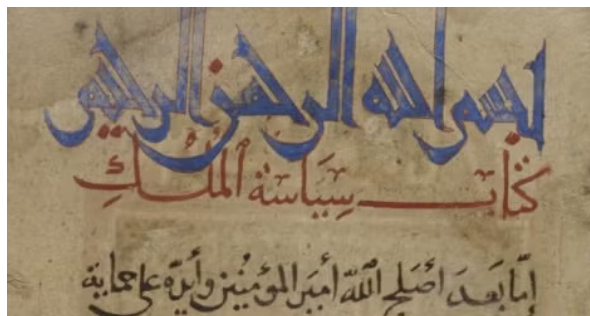 بسم الله الرحمن الرحيم
كتاب سِيَاسة المُلُكِ
إمّا بَعدَ أصْلح الله أميَر المؤمنيْن وأيدّه على حماية